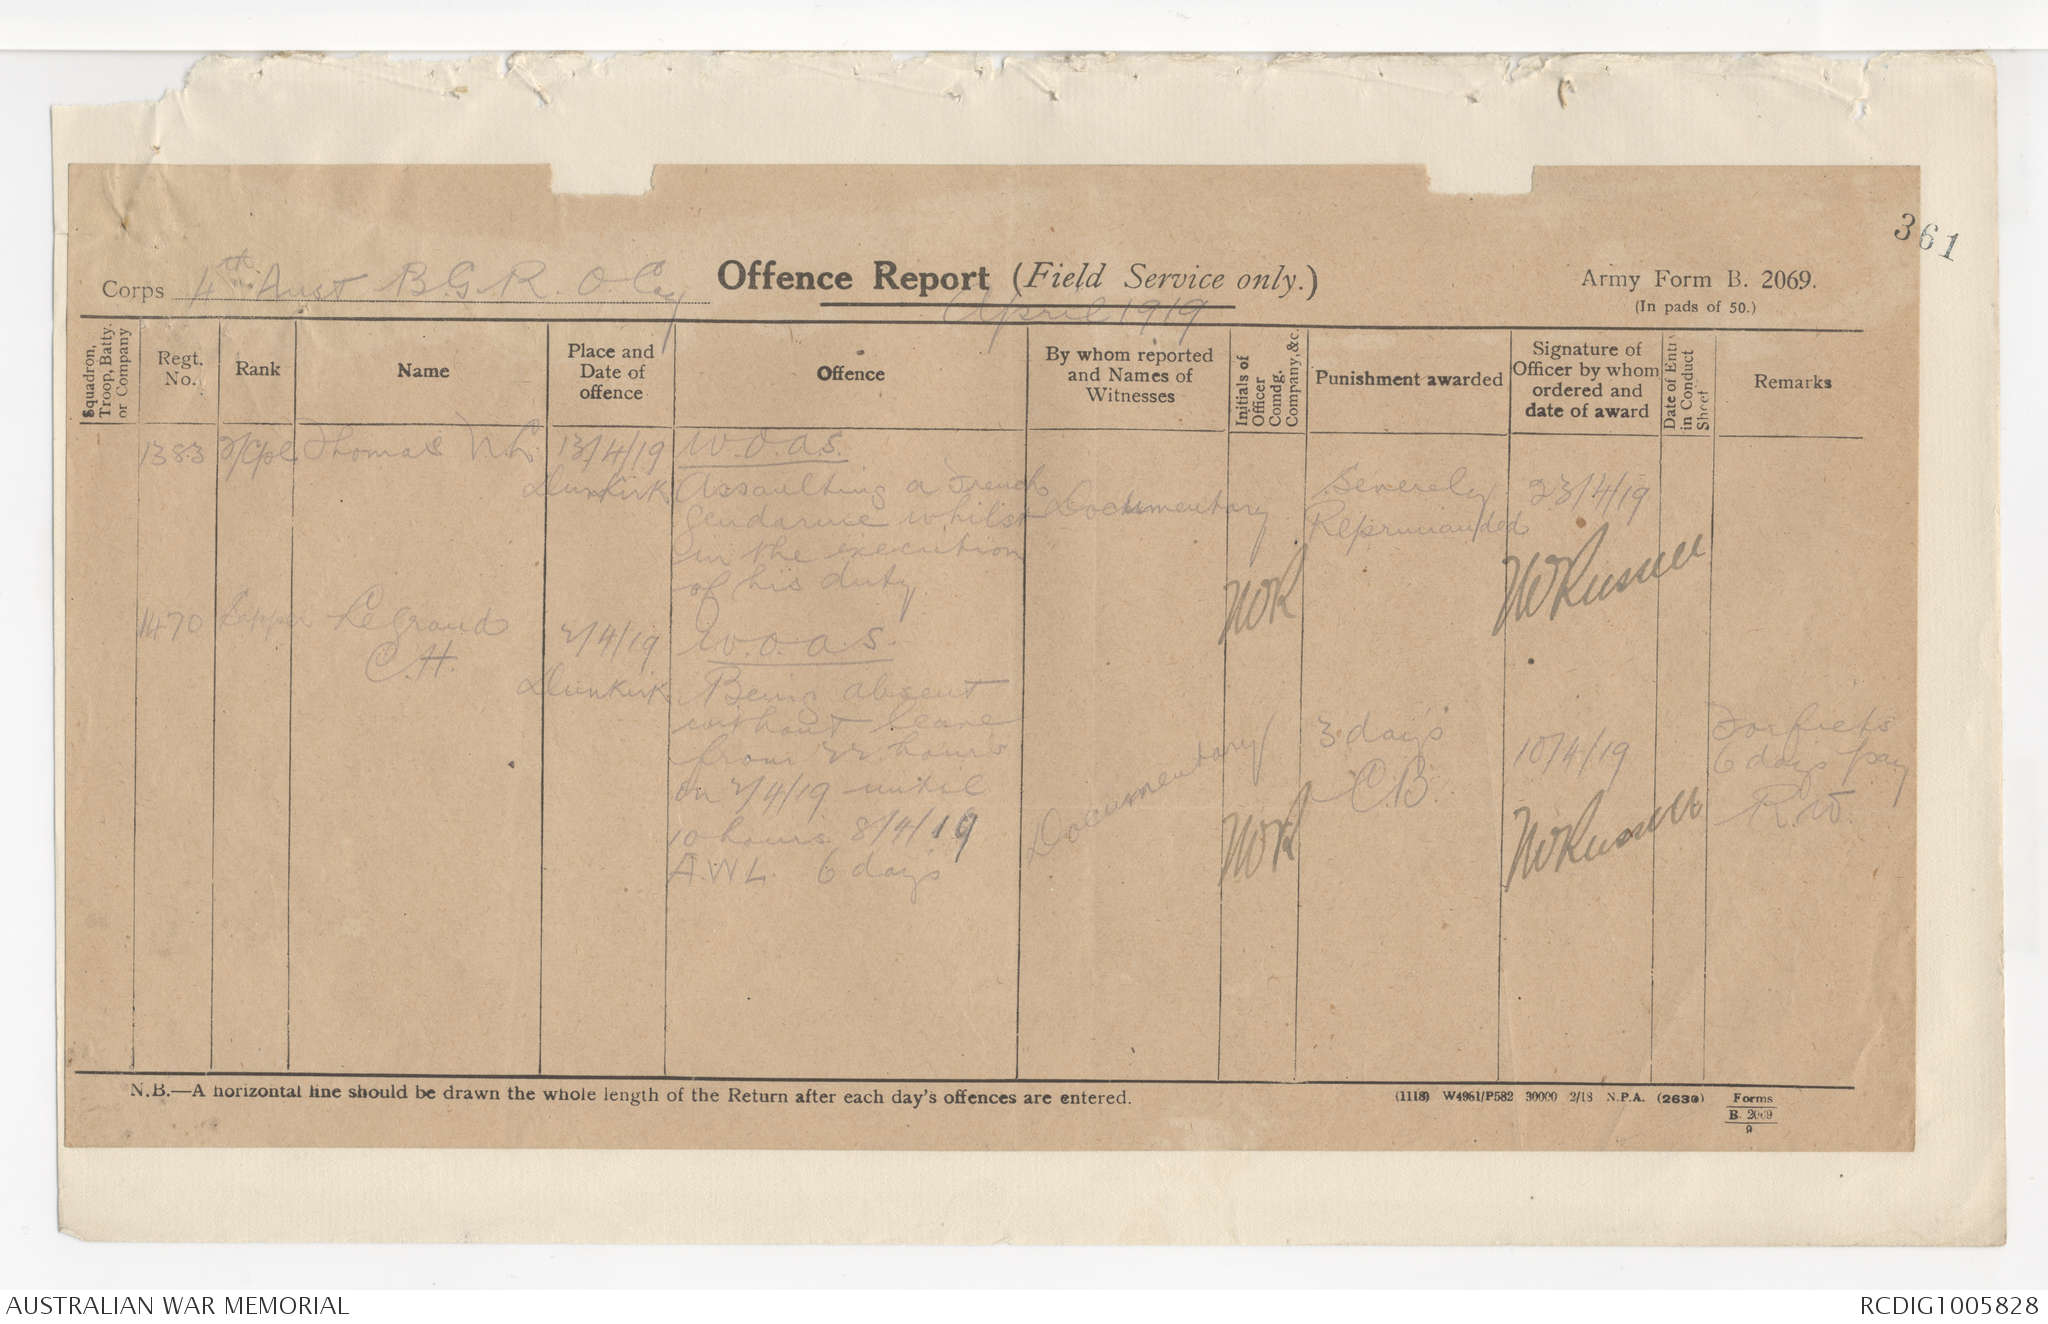 361
Corps 4th Aust B.G.R.O. Coy Offence Report (Field Service only.) Army Form B. 2069.
April 1919 (In pads of 50.)
Squadron, Troop, Batty. or Company
Regt. No.
Rank
Name
Place and Date of offence
Offence
By whom reported and Names of Witnesses
Initials of Officer Comdg. Company, &c.
Punishment awarded
Signature of Officer by whom ordered and date of award
Date of Entry in Conduct Sheet
Remarks
1383 2/Cpl Thomas 13/4/19 W.O.A.S.
Dunkirk Assaulting a French
gendarme whilst
in the execution
of his duty
Documentary
WR
Severely
Reprimanded
23/4/19
WRussell
1470 Sapper Legrand 2/4/19 W.O.A.S.
C.H.
Dunkirk Being absent
without leave
from 22 hours
on 2/4/19 until
10 hours 8/4/19
A.W.L. 6 days
Documentary
WR
3 days
C.B.
10/4/19
WRussell
Forfiets
6 days pay
R.W.
N.B.—A horizontal line should be drawn the whole length of the Return after each day's offences are entered.
(1118) W4961/P582 30000 2/18 N.P.A. (2630) Forms
B. 2069
9
AUSTRALIAN WAR MEMORIAL RCDIG1005828